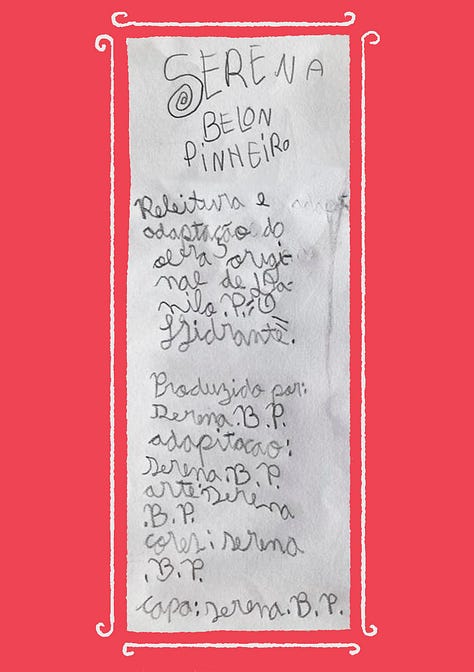 SERENA
BELON
PINHEIRO
Releitura e
adaptação do
obra origi-
nal de Da-
nilo.P.: O
Hidrante.
Produzido por:
Serena.B.P.
adapitacao:
Serena.B.P.
arte: Serena
.B.P.
cores: serena
.B.P.
capa: serena.B.P.